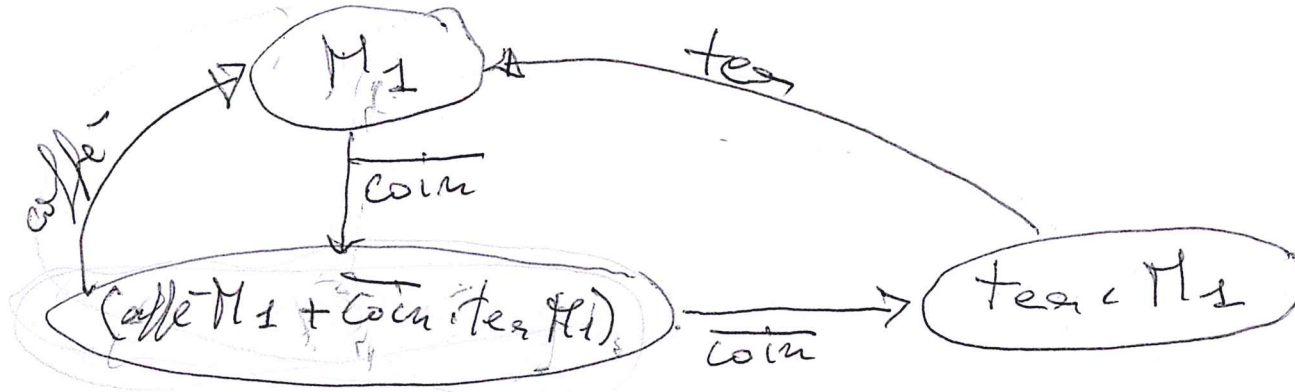 M1
tea
caffé
c̅o̅i̅n̅
(caffé M1 + c̅o̅i̅n̅.tea M1)
c̅o̅i̅n̅
tea. M1